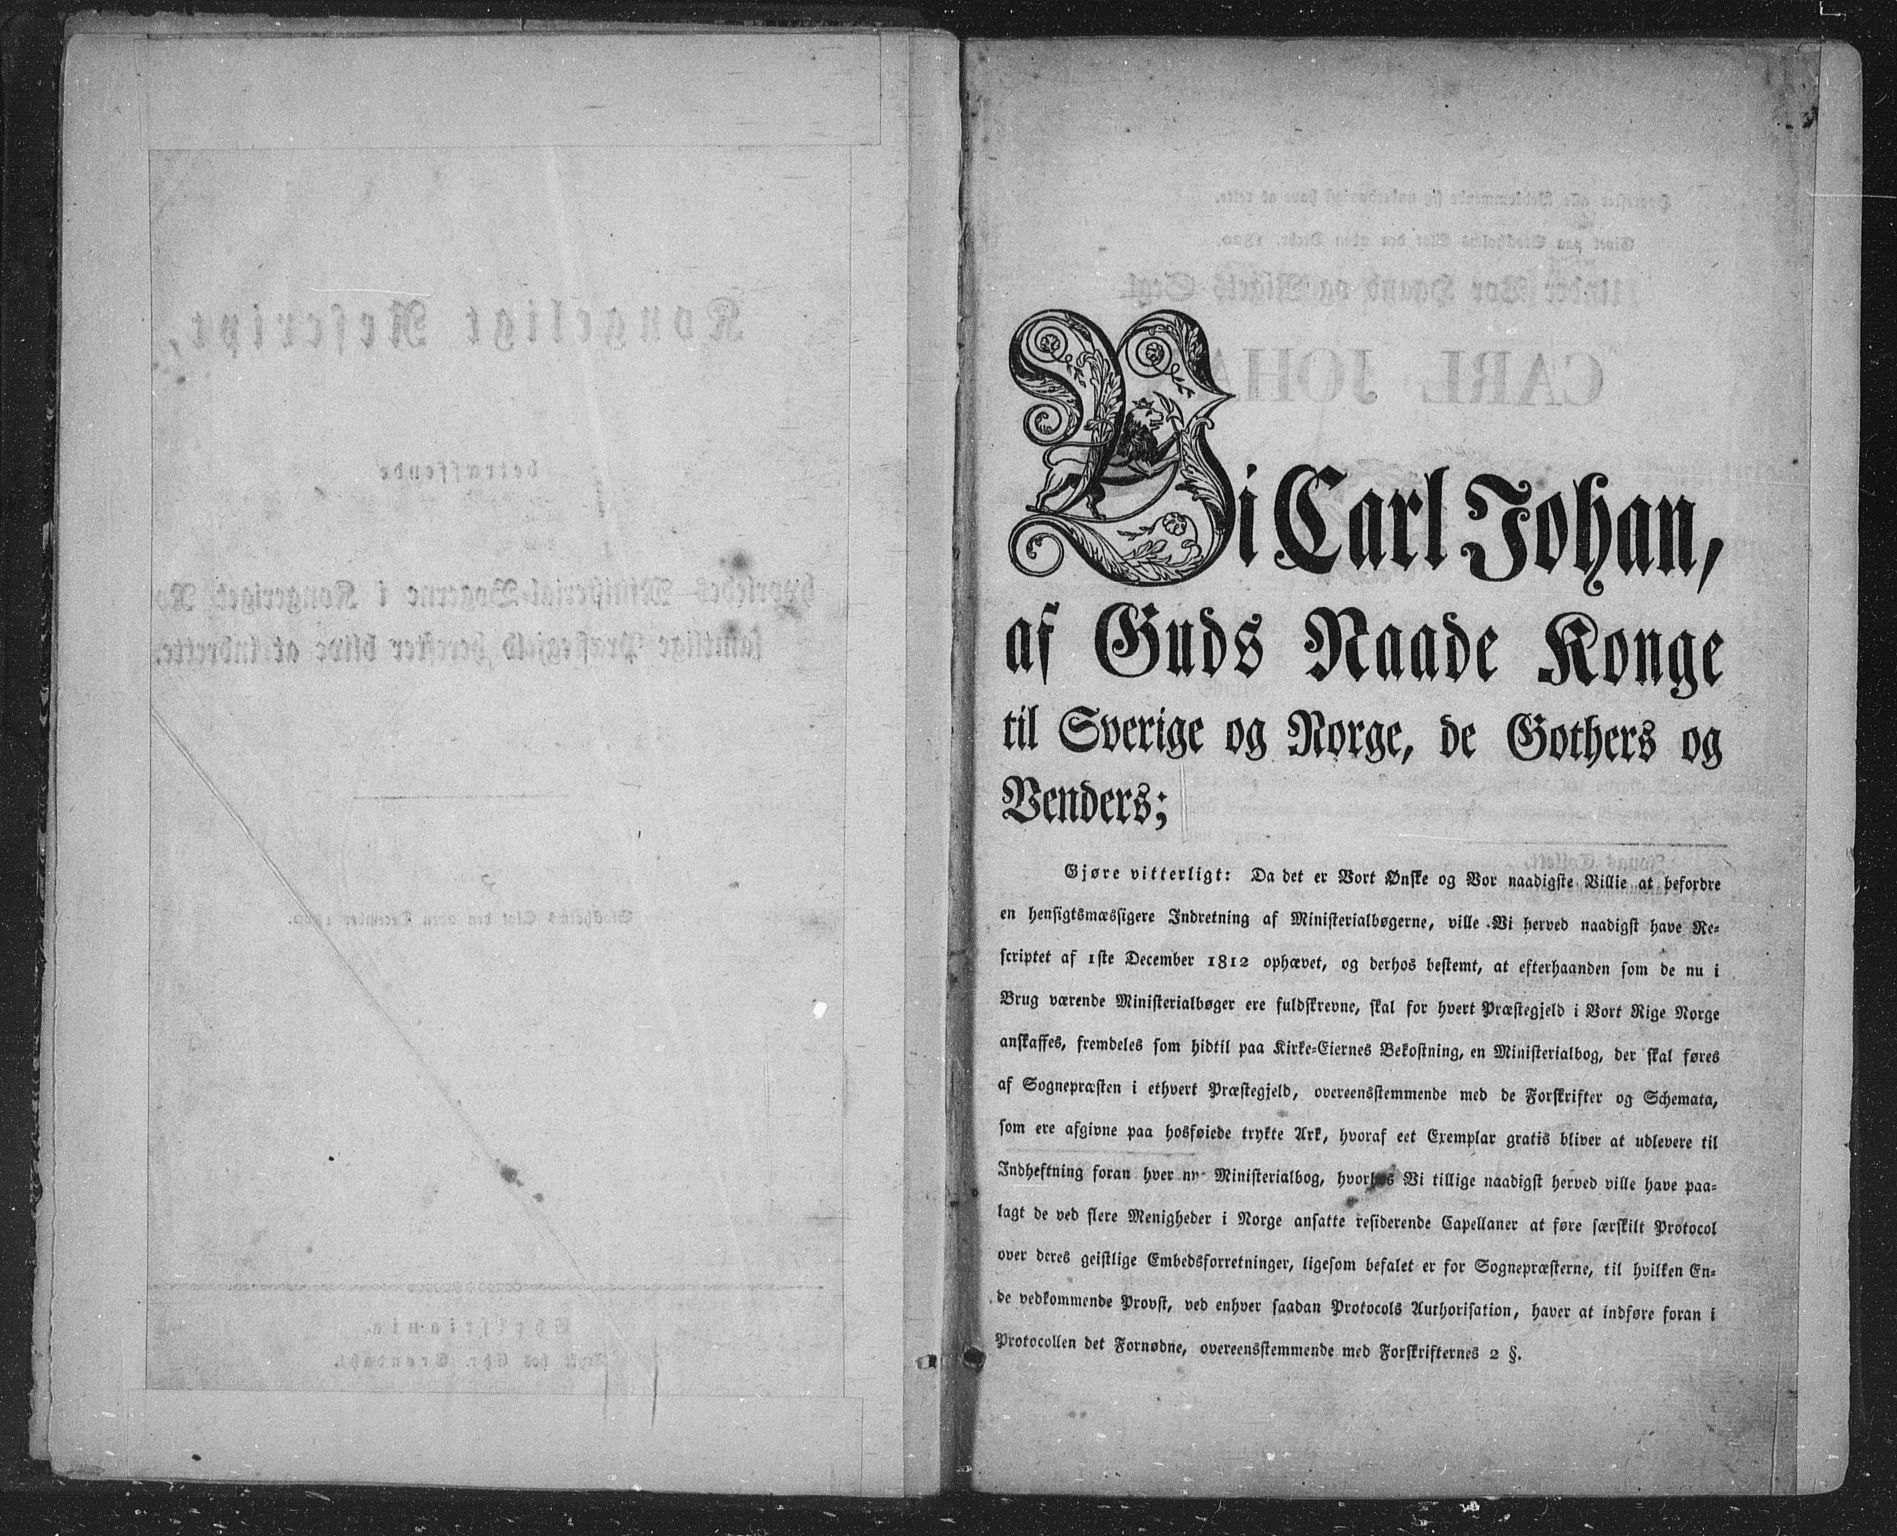 Vi Carl Johan,
af Guds Naade Konge
til Sverige og Norge, de Gothers og
Venders;
Gjøre vitterligt: Da det er Vort Ønske og Vor naadigste Villie at befordre
en hensigtsmæssigere Indretning af Ministerialbøgerne, ville Vi herved naadigst have Re-
scriptet af 1ste December 1812 ophævet, og derhos bestemt, at efterhaanden som de nu i
Brug værende Ministerialbøger ere fuldskrevne, skal for hvert Præstegjeld i Vort Rige Norge
anskaffes, fremdeles som hidtil paa Kirke-Eiernes Bekostning, en Ministerialbog, der skal føres
af Sognepræsten i ethvert Præstegjeld, overeensstemmende med de Forskrifter og Schemata,
som ere afgivne paa hosføiede trykte Ark, hvoraf eet Exemplar gratis bliver at udlevere til
Indheftning foran hver ny Ministerialbog, hvorhos Vi tillige naadigst herved ville have paa-
lagt de ved flere Menigheder i Norge ansatte residerende Capellaner at føre særskilt Protocol
over deres geistlige Embedsforretninger, ligesom befalet er for Sognepræsterne, til hvilken En-
de vedkommende Provst, ved enhver saadan Protocols Authorisation, haver at indføre foran i
Protocollen det Fornødne, overeensstemmende med Forskrifternes 2 §.